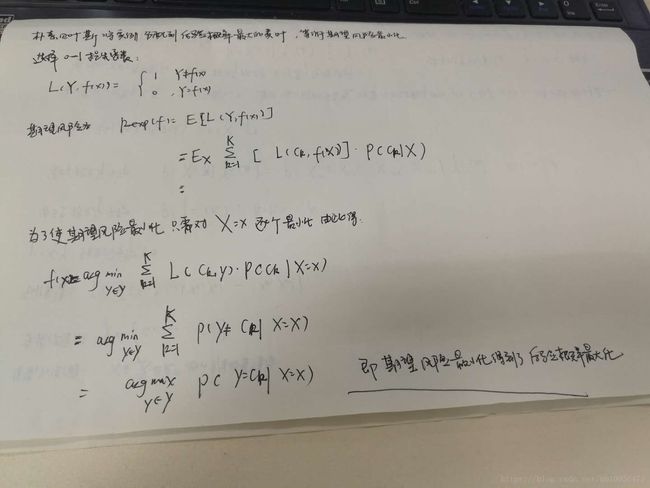 朴素贝叶斯将实例分配到后验概率最大的类中,等价于期望风险最小化
选择 0-1 损失函数:
L(Y, f(x)) = { 1 Y≠f(x)
0 , Y=f(x)
期望风险为 Rexp(f) = E[L(Y, f(x))]
= Ex Σ_{k=1}^{K} [ L(Ck, f(X))] · P(Ck|X)
:
为了使期望风险最小化 只需对 X=x 逐个最小化 由此得.
f(x) = arg min_{y∈Y} Σ_{k=1}^{K} L(Ck, y) · P(Ck | X=x)
= arg min_{y∈Y} Σ_{k=1}^{K} P(y≠Ck | X=x)
= arg max_{y∈Y} P( y=Ck | X=x)
即期望风险最小化得到了后验概率最大化